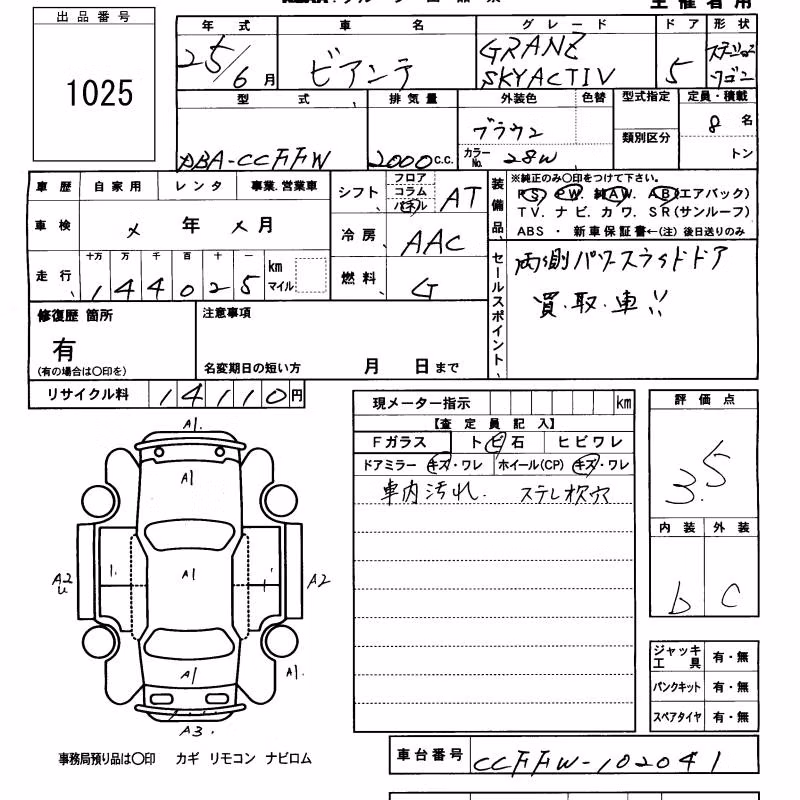 出品番号
1025
主催者用
年式 車名 グレード ドア 形状
25/6月 ビアンテ GRANZ SKYACTIV 5 ステーションワゴン
型式 排気量 外装色 色替 型式指定 定員・積載
DBA-CCFFW 2000c.c. ブラウン 類別区分 8名
カラーNo. 28W トン
車歴 自家用 レンタ 事業.営業車
シフト フロア コラム パネル AT
装備品 ※純正のみ○印をつけて下さい。
PS. PW. 純AW. AB(エアバック)
TV. ナビ. カワ. SR(サンルーフ)
ABS ・ 新車保証書←(注) 後日送りのみ
車検 メ年 メ月
冷房 AAC
走行 十万 万 千 百 十 一 km マイル
144025
燃料 G
セールスポイント
両側パワースライドドア
買.取.車!!
修復歴 箇所
有
(有の場合は○印を)
注意事項
名変期日の短い方 月 日まで
リサイクル料 14110円
現メーター指示 km
【査定員記入】
Fガラス トビ石 ヒビワレ
ドアミラー キズ・ワレ ホイール(CP) キズ・ワレ
車内汚れ. ステレオ枕穴
評価点
3.5
内装 外装
b C
A1.
A1
A2
U
1.
A1
1'
A2
A1
A1.
A3.
ジャッキ工具 有・無
パンクキット 有・無
スペアタイヤ 有・無
事務局預り品は○印 カギ リモコン ナビロム
車台番号 CCFFW-102041